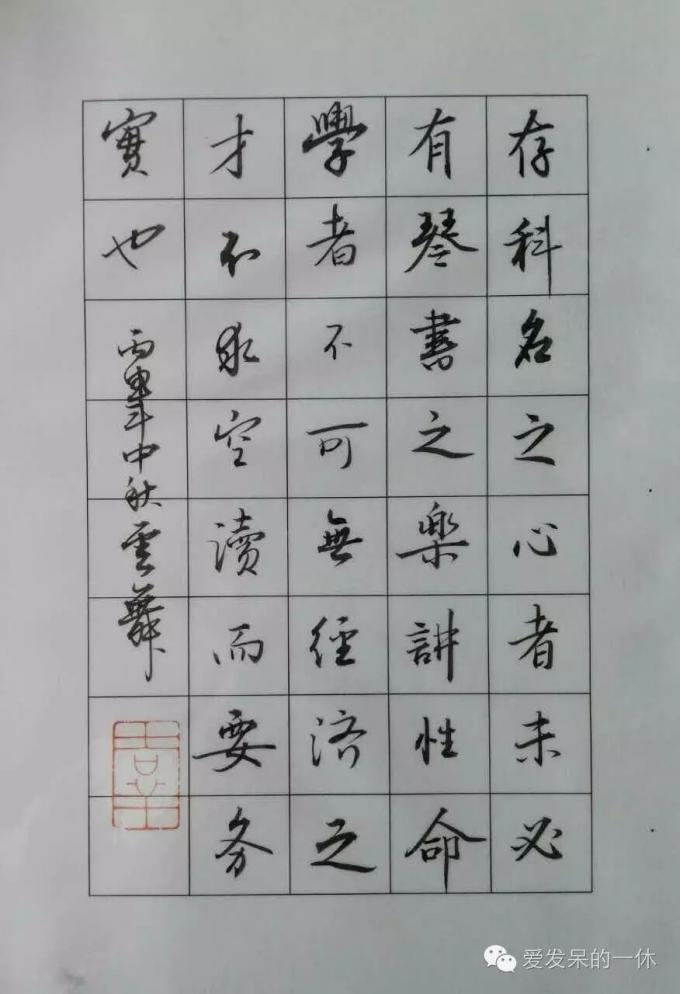 存科名之心者未必
有琴書之樂講性命
學者不可無經济之
才不求空讀而要务
實也
丙申年中秋雲舞
爱发呆的一休